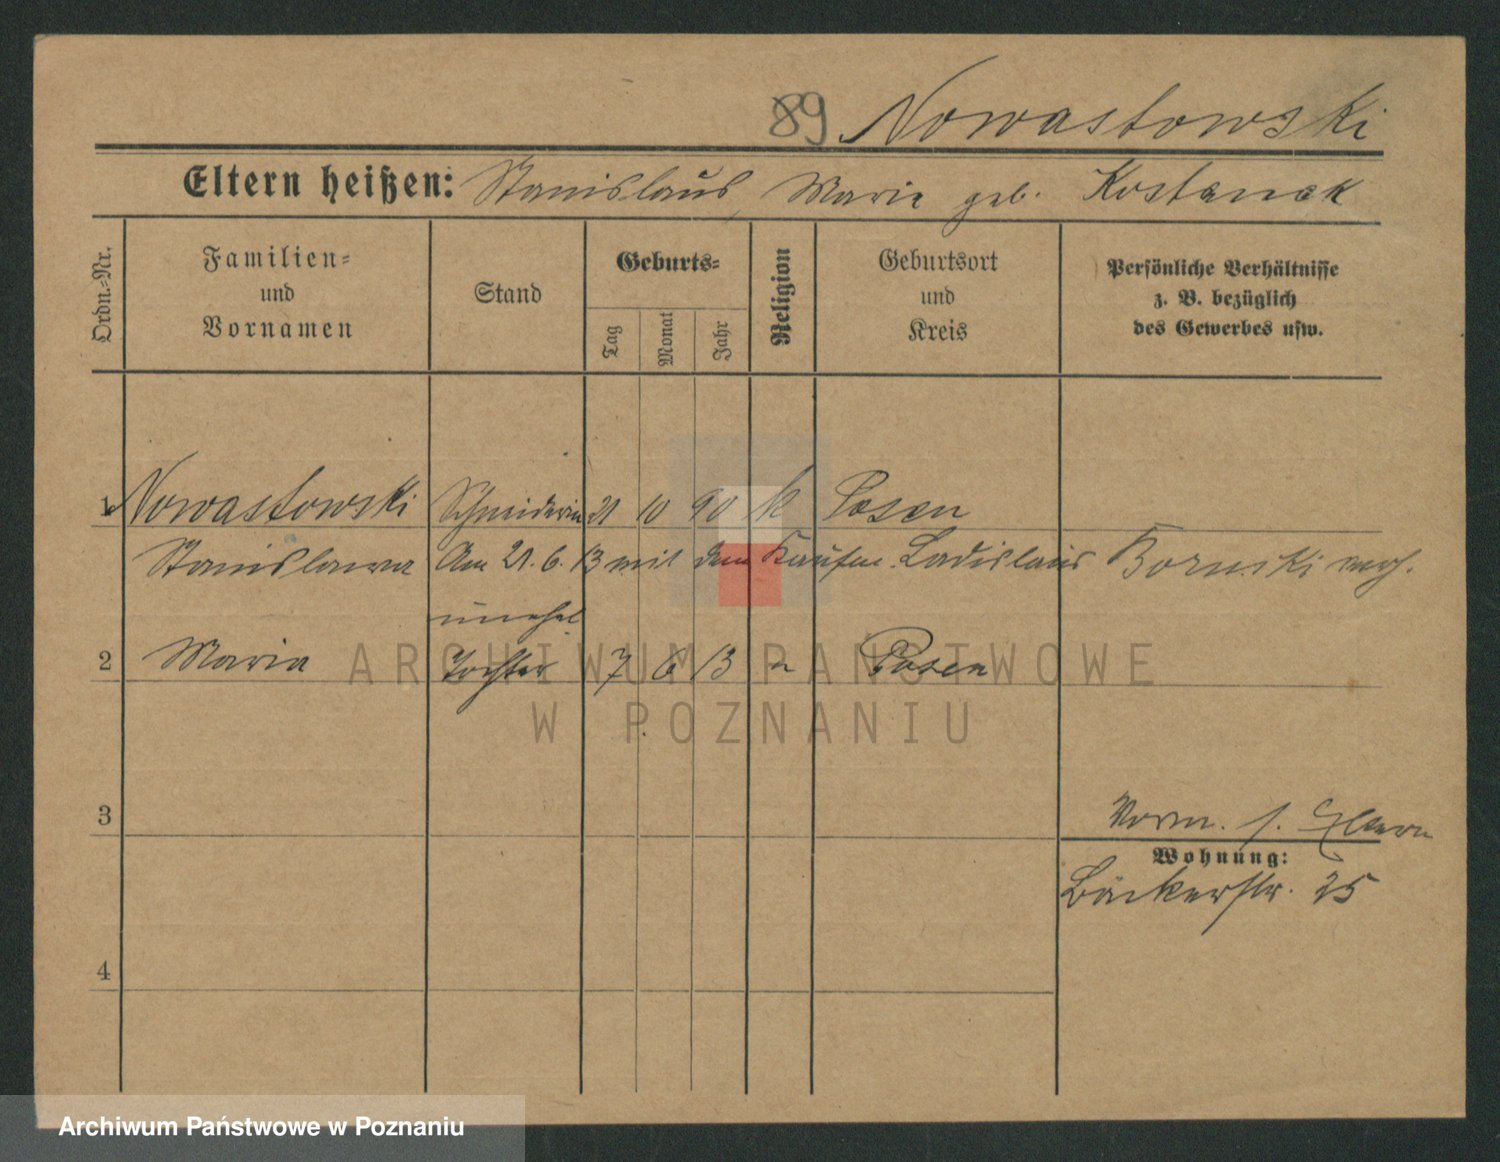 89 Nowastowski
Eltern heißen: Stanislaus, Marie geb. Kostanek
Ordn.=Nr.
Familien=
und
Vornamen
Stand
Geburts=
Tag
Monat
Jahr
Religion
Geburtsort
und
Kreis
Persönliche Verhältnisse
z. B. bezüglich
des Gewerbes usw.
1 Nowastowski Schneiderin 21 10 90 k Posen
Stanislawa Am 21.6.13 mit dem Kaufm. Ladislaus verh.
unehel.
2 Maria Tochter 7 6 13 " Posen
3
Vorm. s. Eltern
Wohnung:
Bäckerstr. 25
4
ARCHIWUM PAŃSTWOWE
W POZNANIU
Archiwum Państwowe w Poznaniu